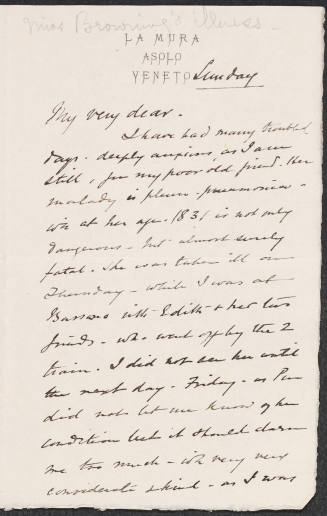 Miss Browning's illness.
LA MURA
ASOLO
VENETO
Sunday
My very dear.
I have had many troubled
days. deeply anxious, as I am
still, for my poor old friend. Her
malady is pleuro-pneumonia -
wh at her age (83) is not only
dangerous - but almost surely
fatal. She was taken ill on
Thursday - while I was at
Bassano with Edith & her two
friends - who went off by the 2
train. I did not see her until
the next day - Friday - as Pen
did not let me know of her
condition lest it should alarm
me too much - wh very very
considerate & kind - as I was